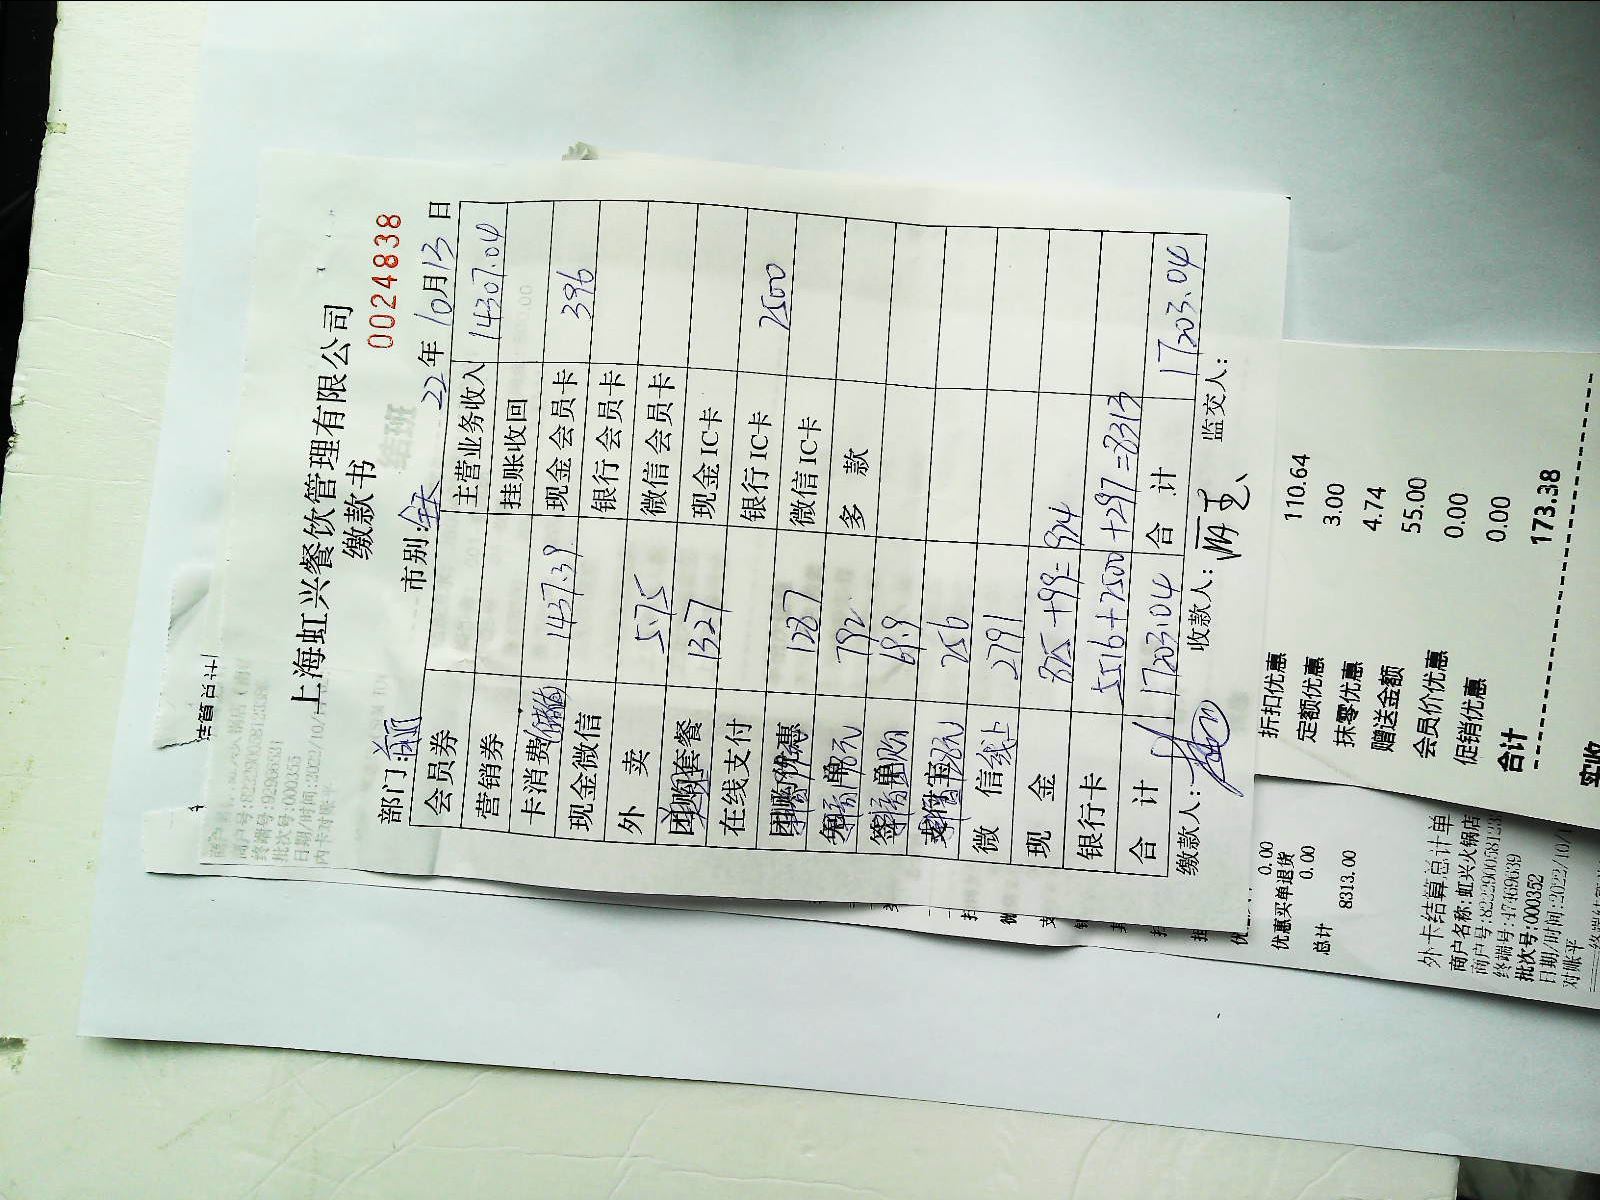 上海虹兴餐饮管理有限公司
缴款书
0024838
部门:
市别:全天
22年10月13日
会员券
主营业务收入 14307.04
营销券
挂账收回
卡消费(储值) 1437.39
现金会员卡 396
现金微信
银行会员卡
外卖 575
微信会员卡
套餐 1327
现金IC卡
在线支付
银行IC卡 2500
1287
微信IC卡
792
多款
69.9
256
微信线上 291
现金 825+99=924
银行卡 5516+2500+297=8313
合计 17203.04
合计 17203.04
缴款人:
收款人:
监交人:
折扣优惠 110.64
定额优惠 3.00
抹零优惠 4.74
赠送金额 55.00
会员价优惠 0.00
促销优惠 0.00
合计 173.38
实收
0.00
优惠买单退货
0.00
总计
8313.00
外卡结算总计单
商户名称:虹兴火锅店
终端号:47469639
批次号:000352
日期/时间:2022/10/1
对账平
终端号:92908331
批次号:000355
日期/时间:2022/10/1
内卡对账平
结算总计